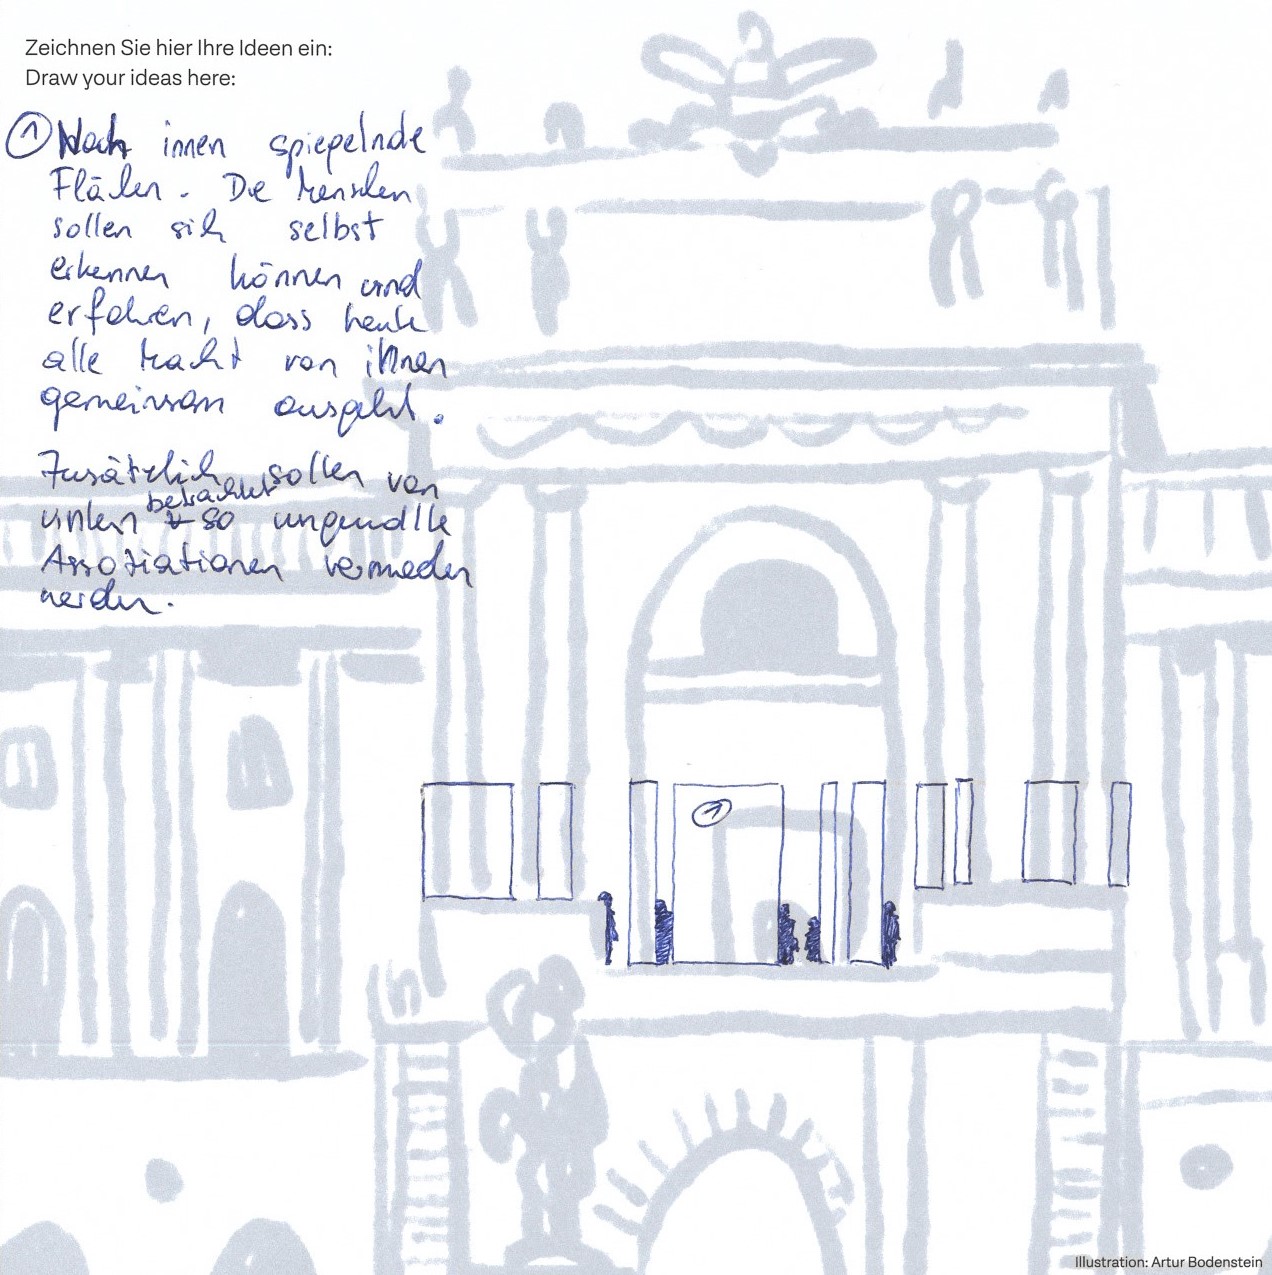 Zeichnen Sie hier Ihre Ideen ein:
Draw your ideas here:
① Nach innen spiegelnde
Flächen. Die Menschen
sollen sich selbst
erkennen können und
erfahren, dass heute
alle Macht von ihnen
gemeinsam ausgeht.
Zusätzlich sollen von
unten betrachtet so ungewollte
Assoziationen vermieden
werden.
①
Illustration: Artur Bodenstein